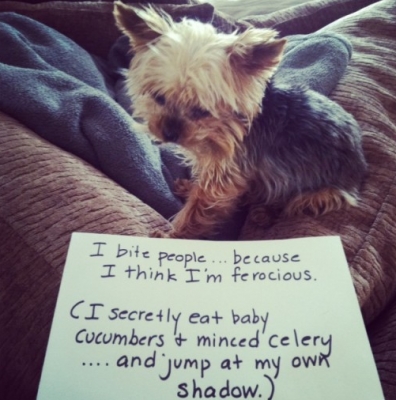 I bite people... because
I think I'm ferocious.
(I secretly eat baby
cucumbers & minced celery
.... and jump at my own
shadow.)